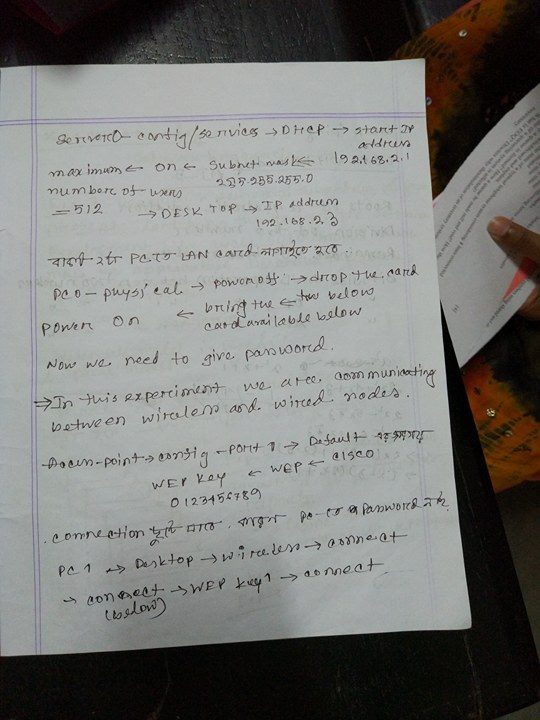 Server0- config/services → DHCP → start IP
address
maximum ← on ← Subnet mask ← 192.168.2.1
number of users 255.255.255.0
= 512 → DESKTOP → IP address
192.168.2.3
বাকী ২টা PC তে LAN card লাগাইতে হবে
PC0 - physical → power off → drop the card
power on ← bring the ← two below
card available below
Now we need to give password.
⇒ In this experiment we are communicating
between wireless and wired nodes.
→ config - PORT 1 → Default
WEP Key ← WEP ← CISCO
0123456789
. connection ছুটে যাবে . কারন pc-তে password নাই.
PC 1 → Desktop → wireless → connect
→ connect → WEP key 1 → connect
(below)